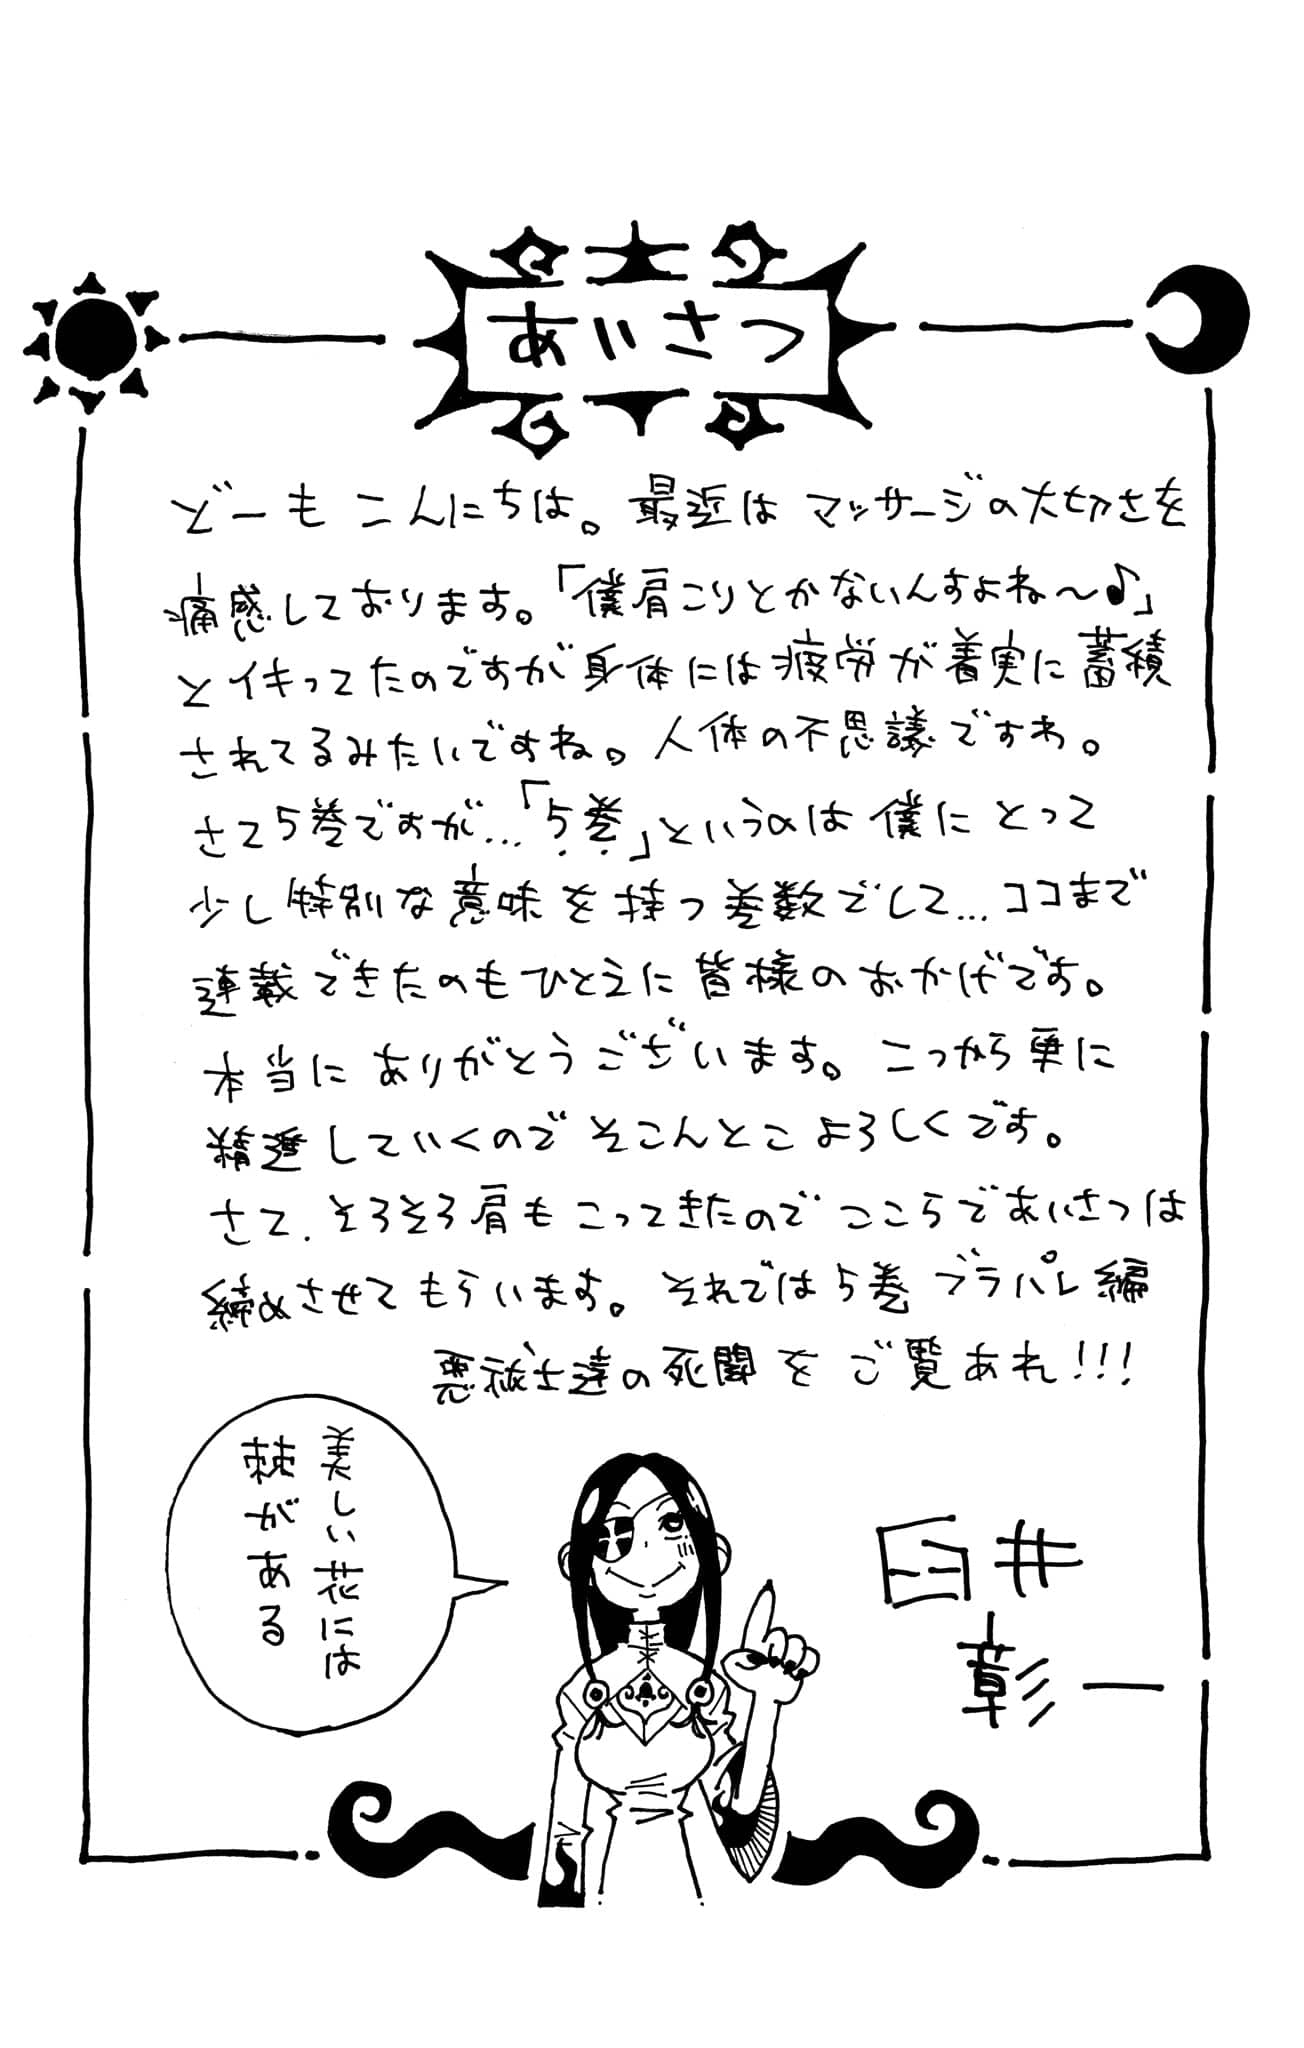 あいさつ
どーもこんにちは。最近はマッサージの大切さを
痛感しております。「僕肩こりとかないんすよね〜♪」
とイキってたのですが身体には疲労が着実に蓄積
されてるみたいですね。人体の不思議ですわ。
さて5巻ですが…「5巻」というのは僕にとって
少し特別な意味を持つ巻数でして…ココまで
連載できたのもひとえに皆様のおかげです。
本当にありがとうございます。こっから更に
精進していくのでそこんとこよろしくです。
さて、そろそろ肩もこってきたのでここらであいさつは
締めさせてもらいます。それでは5巻ブラパレ編
悪祓士達の死闘をご覧あれ!!!
美しい花には
棘がある
臼井
彰一